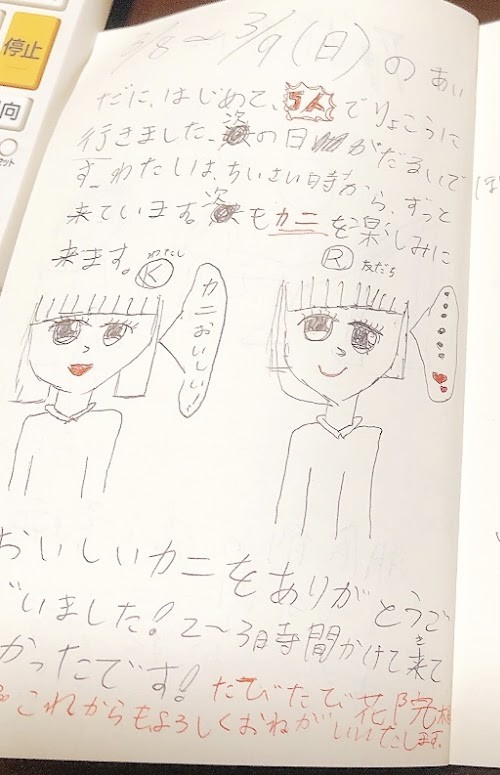 停止
向
3/8〜3/9(日)の あい
だに、はじめて、5人でりょこうに
行きました。姿の日がだるいで
す。わたしは、ちいさい時から、ずっと
来ています。姿もカニを楽しみに
来ます。
わたし
K
友だち
R
カニおいしい!
おいしいカニをありがとうご
ざいました!2〜3時間かけて来て
よかったです!たびたび花院様
これからもよろしくおねがいいたします。